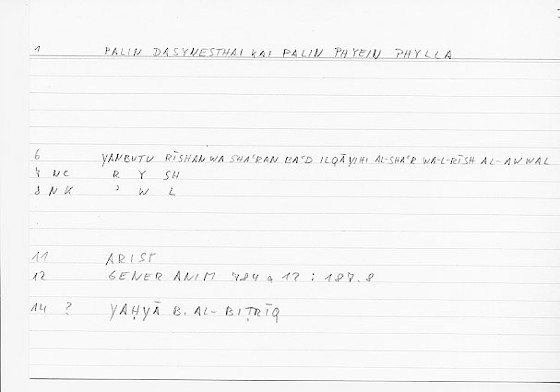 1 PALIN DASYNESTHAI KAI PALIN PHYEIN PHYLLA
6 YANBUTU RĪSHAN WA SHAʿRAN BAʿD ILQĀYIHI AL-SHAʿR WA-L-RĪSH AL-AWWAL
NC R Y SH
8 NK ʾ W L
11 ARIST
12 GENER ANIM 784 a 17 : 187.8
14 ? YAḤYĀ B. AL-BIṬRĪQ